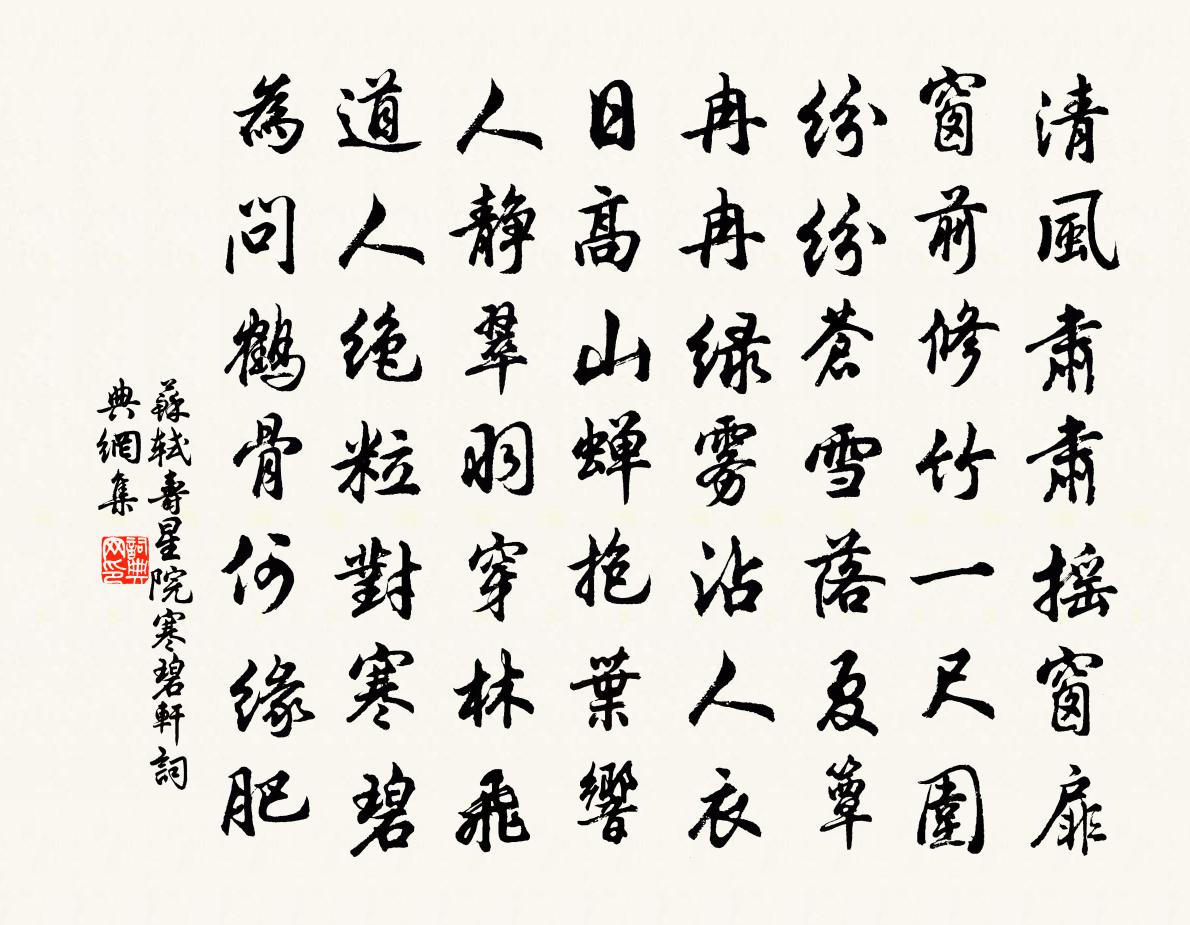 清風肅肅搖窗扉
窗前修竹一尺圍
紛紛蒼雪落夏簟
冉冉綠霧沾人衣
日高山蟬抱葉響
人靜翠羽穿林飛
道人絕粒對寒碧
為問鶴骨何緣肥
蘇軾壽星院寒碧軒詞
典網集
詞典
网印